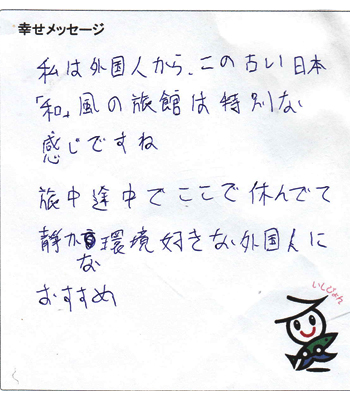 幸せメッセージ
私は外国人から、この古い日本
「和」風の旅館は特別な
感じですね
旅中途中でここで休んでて
静かな環境好きな外国人に
おすすめ
いしぴょん